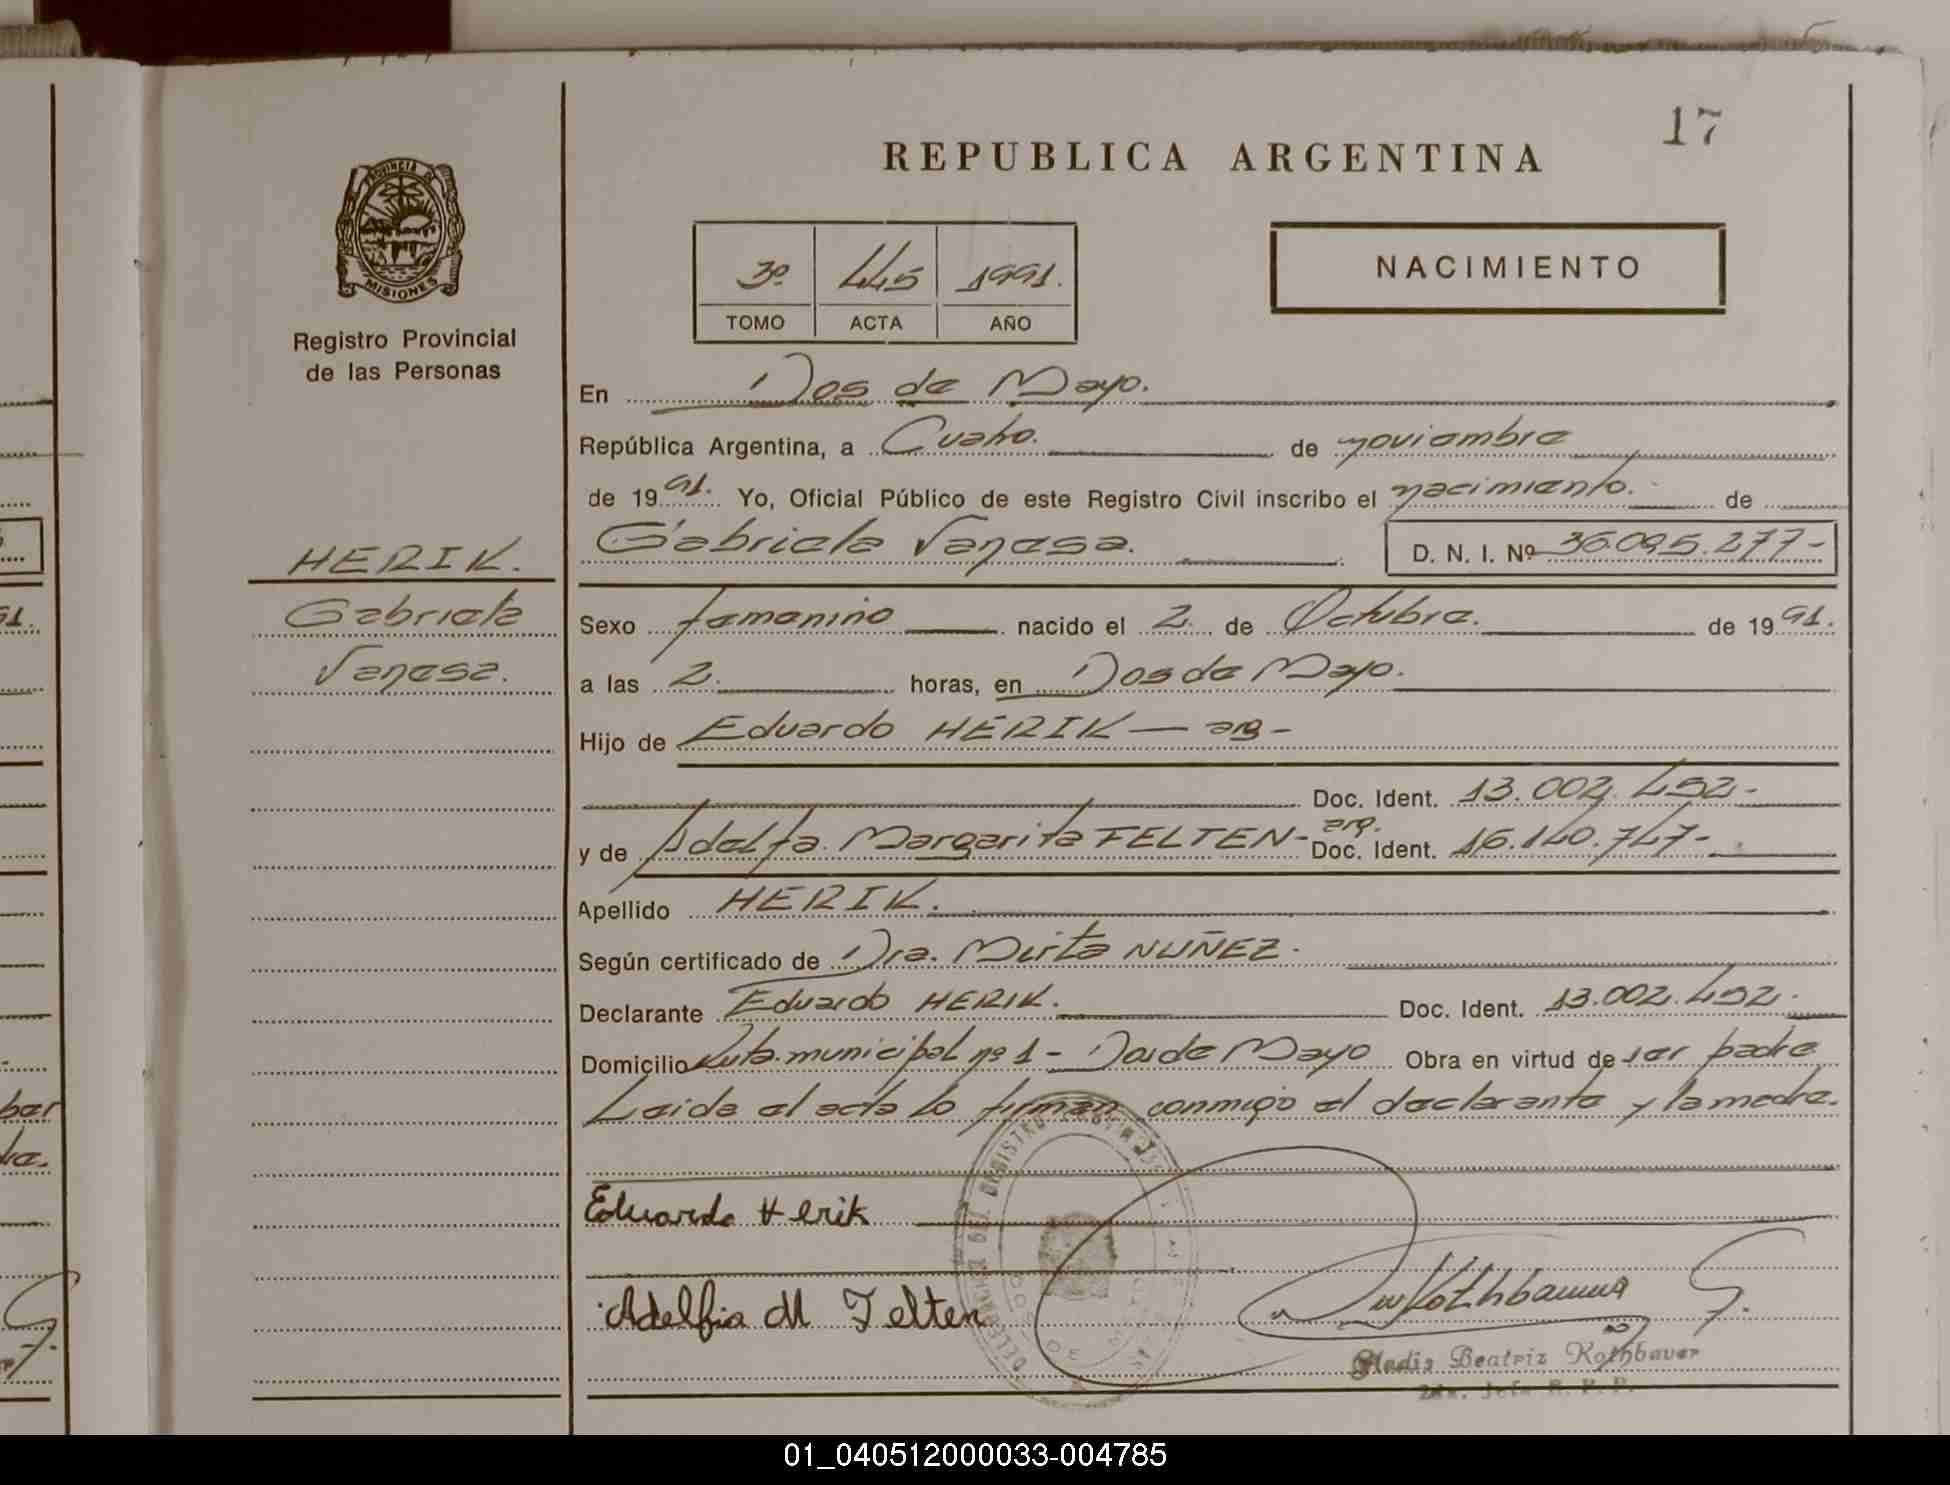 17
REPUBLICA ARGENTINA
PROVINCIA DE
MISIONES
Registro Provincial
de las Personas
3º 445 1991.
TOMO ACTA AÑO
NACIMIENTO
En Dos de Mayo.
República Argentina, a Cuatro. de noviembre
de 1991. Yo, Oficial Público de este Registro Civil inscribo el nacimiento. de
Gabriela Vanesa. D. N. I. Nº 36.095.277-
HERIK.
Gabriela
Vanesa.
Sexo femenino nacido el 2. de Octubre. de 1991.
a las 2. horas, en Dos de Mayo.
Hijo de Eduardo HERIK — arg -
Doc. Ident. 13.002.492-
y de Adelfa Margarita FELTEN- arg. Doc. Ident. 16.140.747-
Apellido HERIK.
Según certificado de Dra. Mirta NUÑEZ.
Declarante Eduardo HERIK. Doc. Ident. 13.002.492.
Domicilio Ruta municipal nº 1 - Dos de Mayo Obra en virtud de ser padre
Leida el acta lo firman conmigo el declarante y la madre.
Eduardo Herik
Adelfia M Felten
Gladis Beatriz Kothbaver
01_040512000033-004785